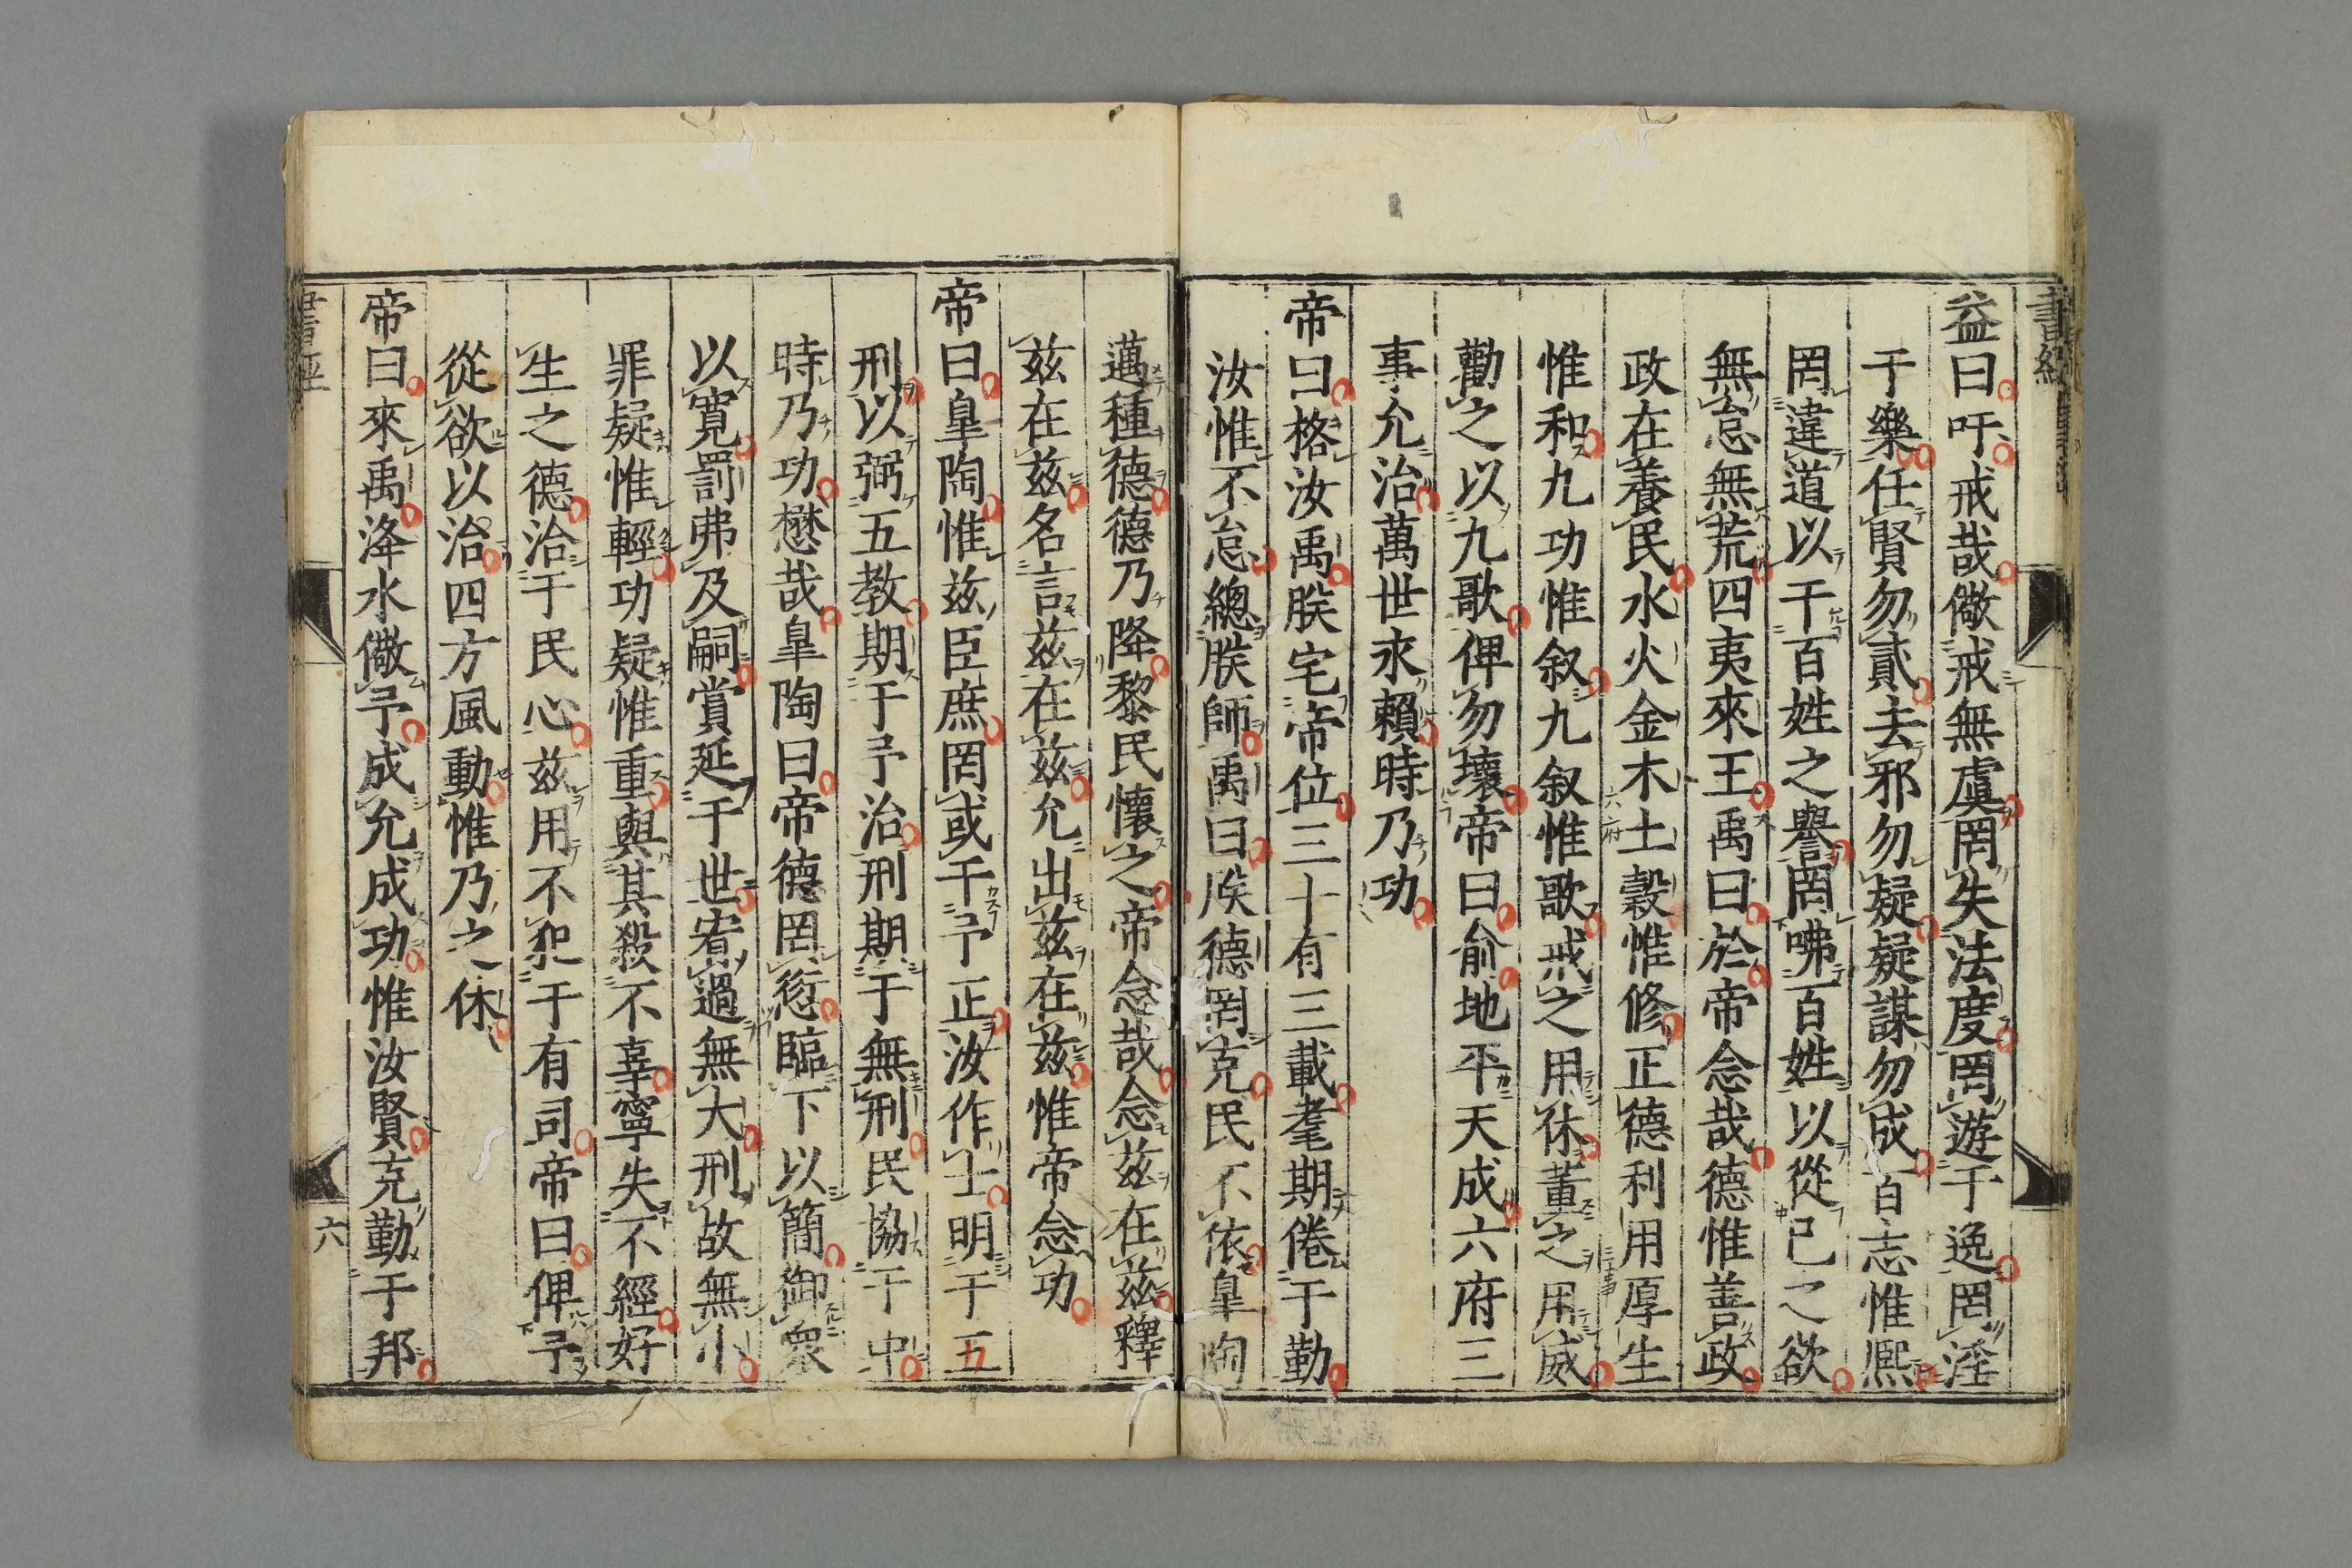 益曰吁戒哉儆戒無虞罔失法度罔遊于逸罔淫
于樂任賢勿貳去邪勿疑疑謀勿成百志惟熈
罔違道以干百姓之譽罔咈百姓以從己之欲
無怠無荒四夷來王禹曰於帝念哉德惟善政
政在養民水火金木土穀惟修正德利用厚生
惟和九功惟叙九叙惟歌戒之用休董之用威
勸之以九歌俾勿壞帝曰俞地平天成六府三
事允治萬世永賴時乃功
帝曰格汝禹朕宅帝位三十有三載耄期倦于勤
汝惟不怠總朕師禹曰朕德罔克民不依皐陶
邁種德德乃降黎民懷之帝念哉念玆在玆釋
玆在玆名言玆在玆允出玆在玆惟帝念功
帝曰皐陶惟玆臣庶罔或干予正汝作士明于五
刑以弼五教期于予治刑期于無刑民協于中
時乃功懋哉皐陶曰帝德罔愆臨下以簡御衆
以寬罰弗及嗣賞延于世宥過無大刑故無小
罪疑惟輕功疑惟重與其殺不辜寧失不經好
生之德洽于民心玆用不犯于有司帝曰俾予
從欲以治四方風動惟乃之休
帝曰來禹洚水儆予成允成功惟汝賢克勤于邦
書經
六